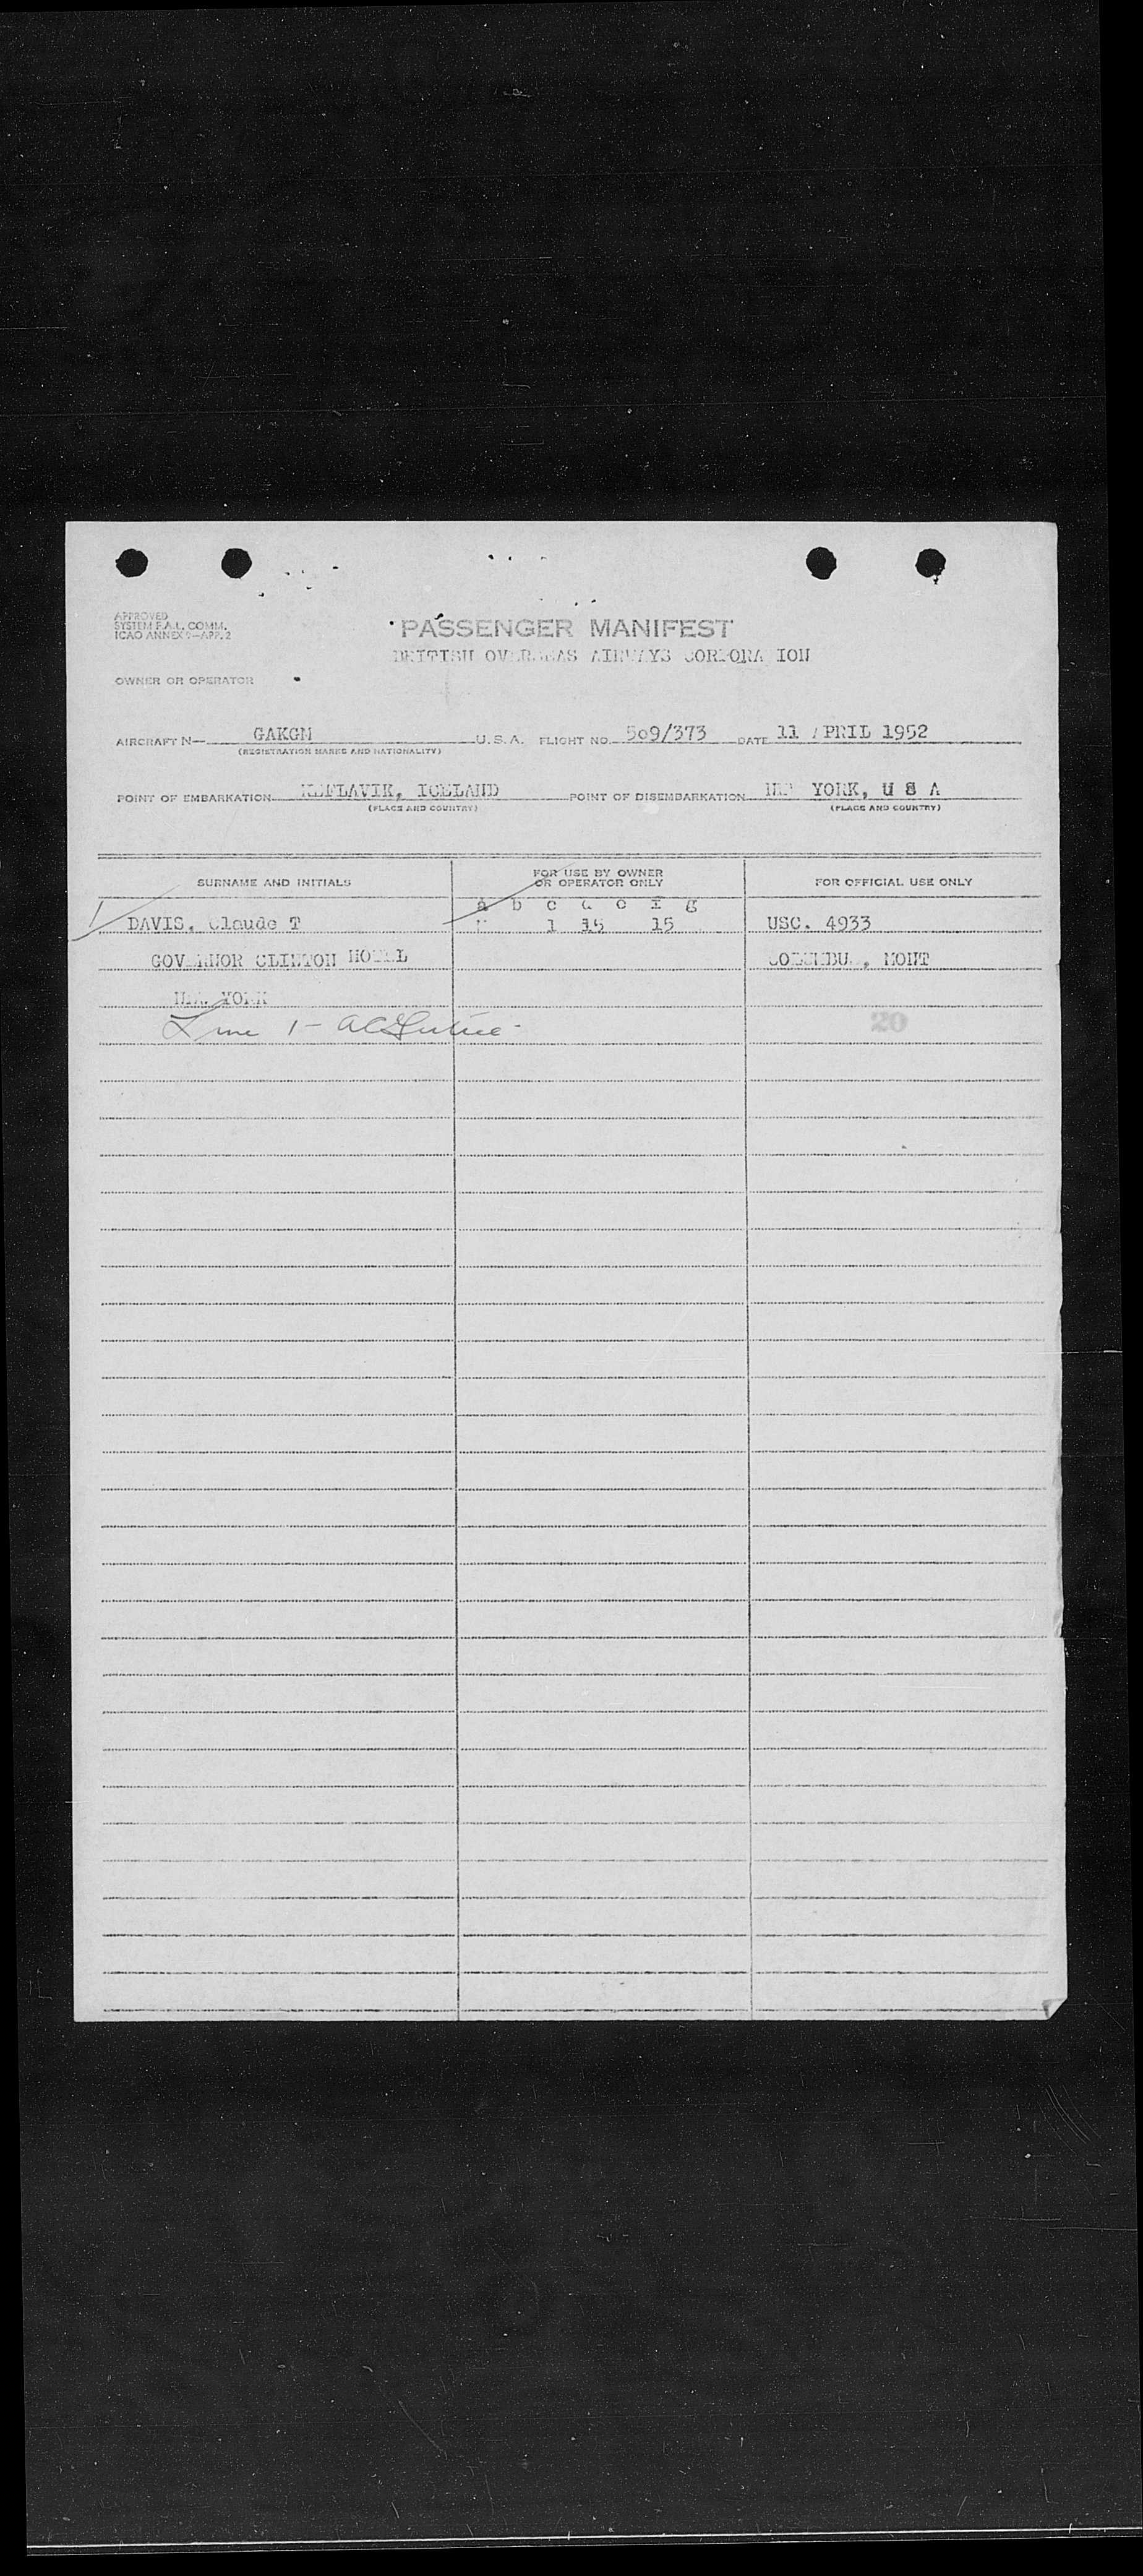 APPROVED
SYSTEM F.A.L. COMM.
ICAO ANNEX 9—APP. 2
PASSENGER MANIFEST
BRITISH OVERSEAS AIRWAYS CORPORA ION
OWNER OR OPERATOR
AIRCRAFT N— GAKGM U.S.A. FLIGHT NO. 509/373 DATE 11 APRIL 1952
(REGISTRATION MARKS AND NATIONALITY)
POINT OF EMBARKATION KEFLAVIK, ICELAND POINT OF DISEMBARKATION NEW YORK, U S A
(PLACE AND COUNTRY) (PLACE AND COUNTRY)
SURNAME AND INITIALS FOR USE BY OWNER OR OPERATOR ONLY FOR OFFICIAL USE ONLY
a b c d e f g
DAVIS, Claude T M 1 15 15 USC. 4933
GOVERNOR CLINTON HOTEL COLUMBUS, MONT
NEW YORK
Line 1 -
20